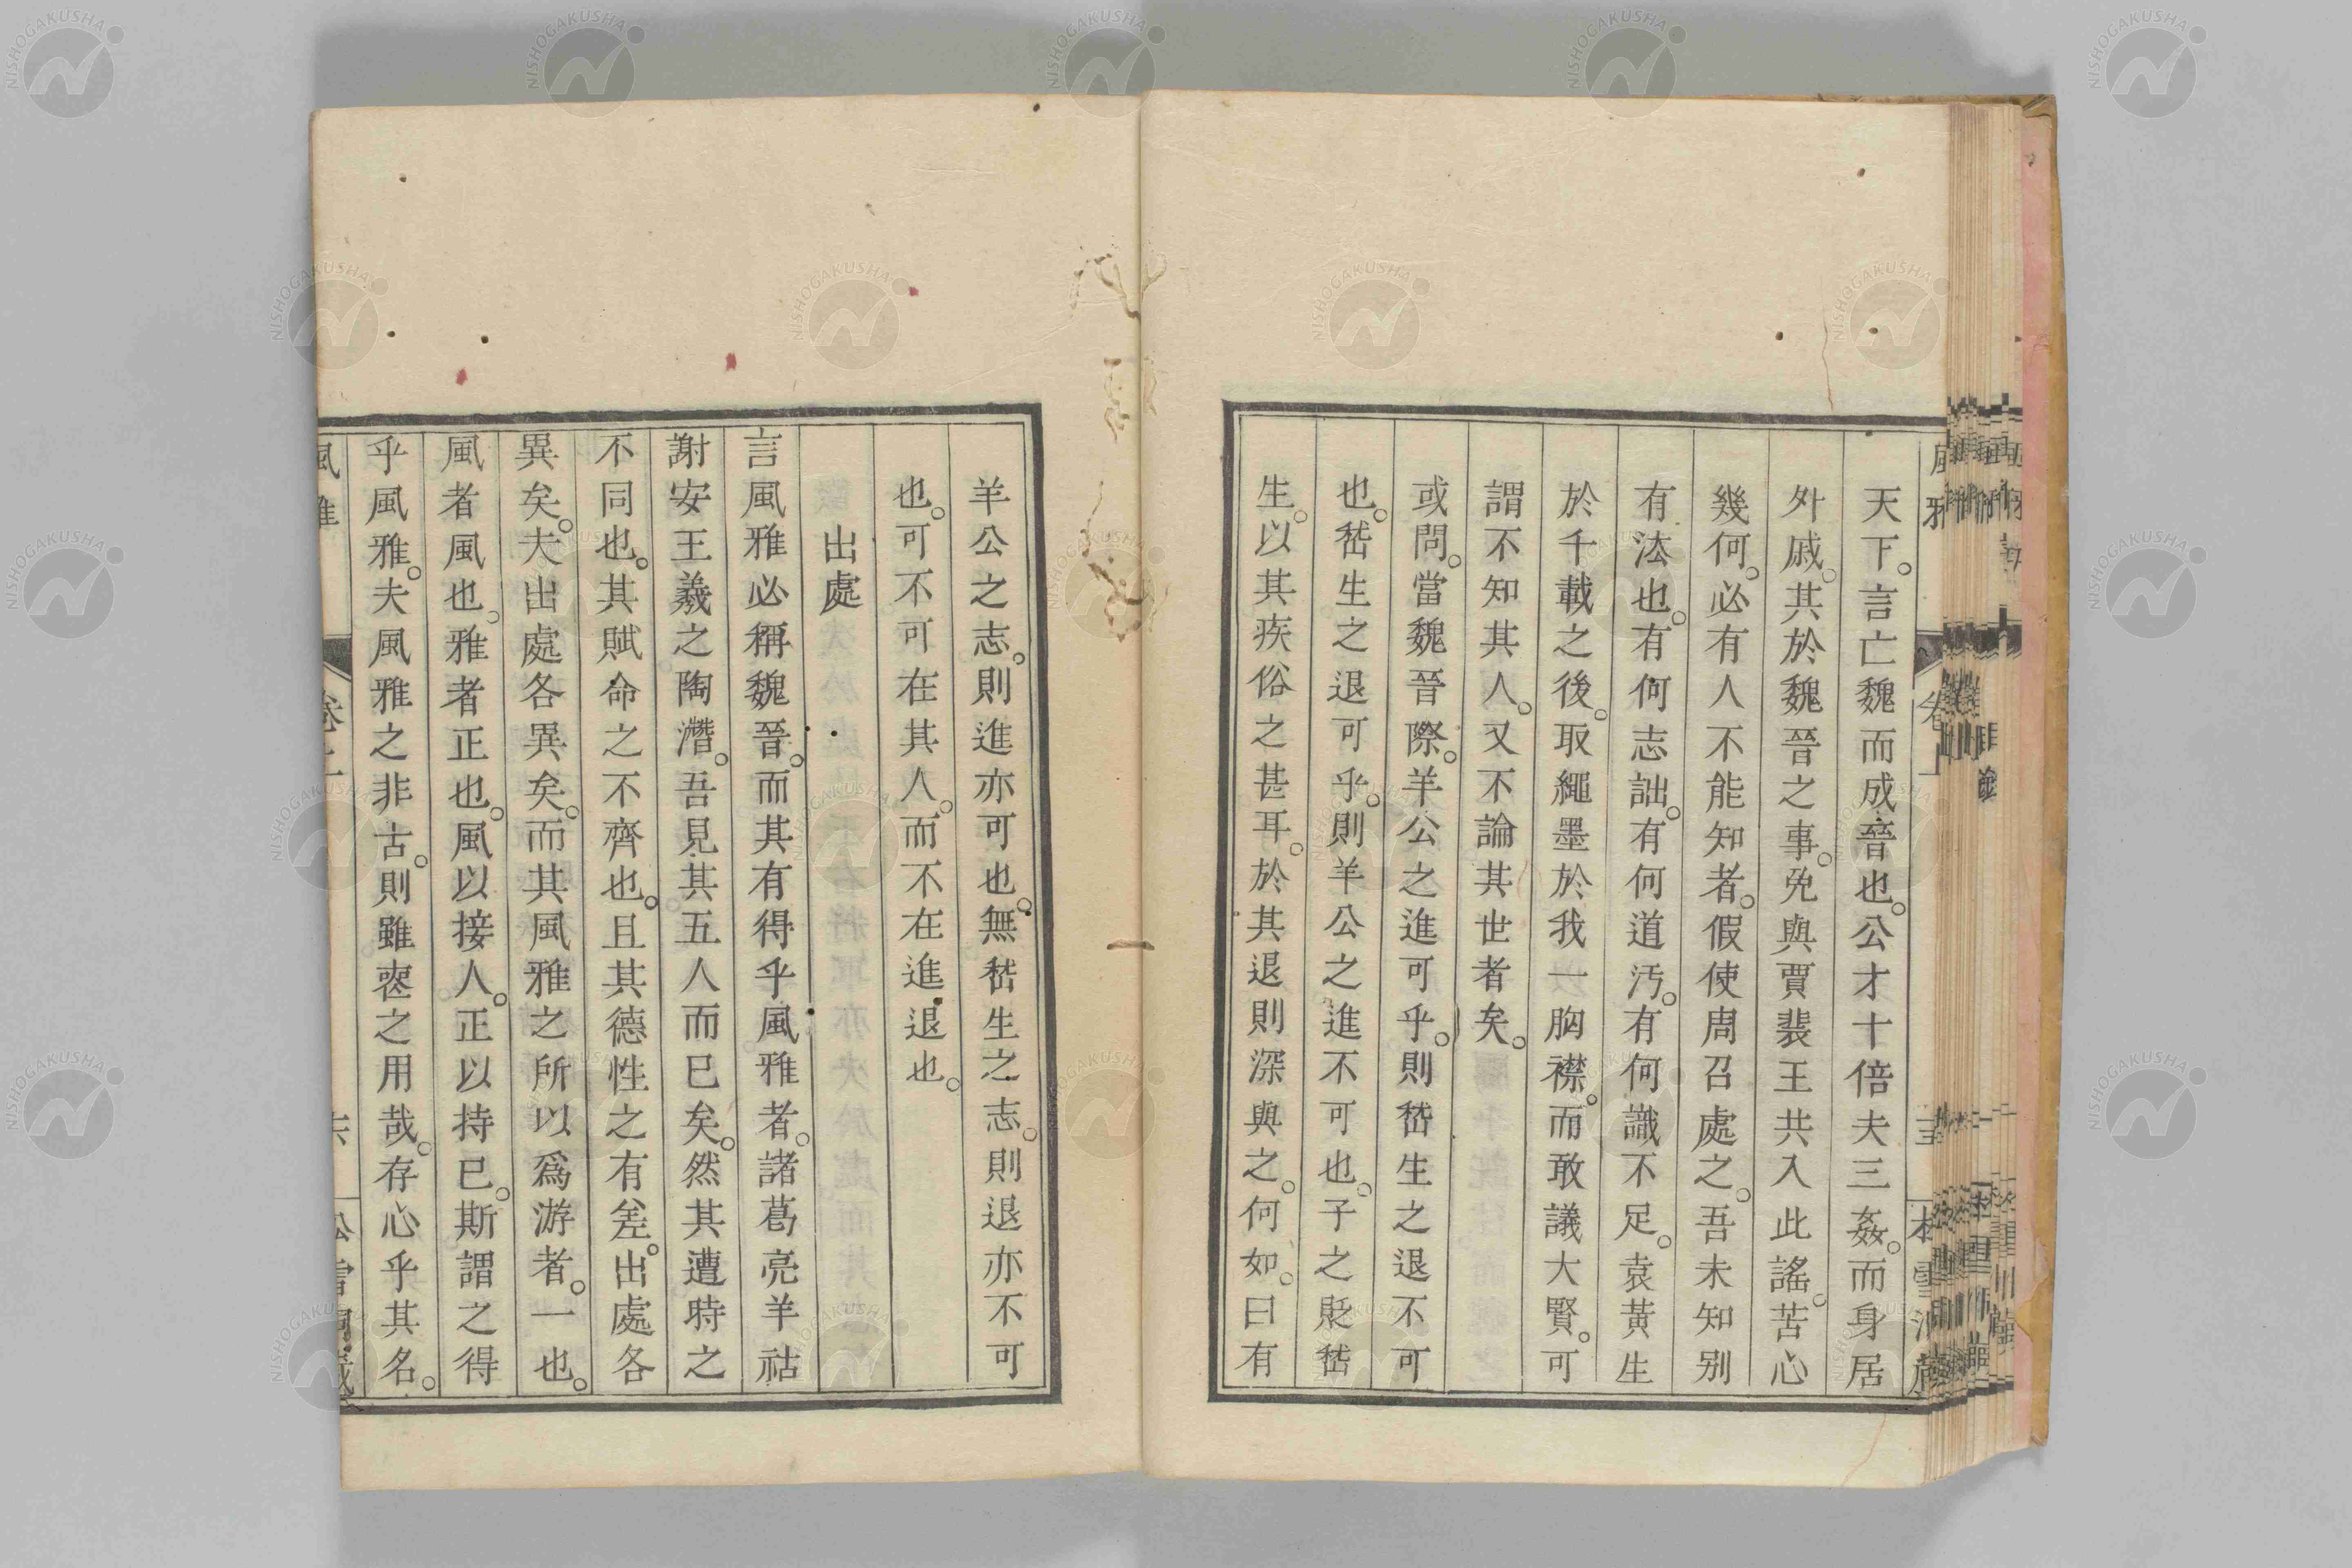 天下。言亡魏而成晉也。公才十倍夫三姦。而身居
外戚。其於魏晉之事。免與賈裴王共入此謠。苦心
幾何。必有人不能知者。假使周召處之。吾未知別
有法也。有何志詘。有何道汚。有何識不足。袁黃生
於千載之後。取繩墨於我一胸襟。而敢議大賢。可
謂不知其人。又不論其世者矣。
或問。當魏晉際。羊公之進可乎。則嵇生之退不可
也。嵇生之退可乎。則羊公之進不可也。子之貶嵇
生。以其疾俗之甚耳。於其退則深與之。何如。曰有
羊公之志。則進亦可也。無嵇生之志。則退亦不可
也。可不可在其人。而不在進退也。
出處
言風雅必稱魏晉。而其有得乎風雅者。諸葛亮羊祜
謝安王羲之陶潛。吾見其五人而已矣。然其遭時之
不同也。其賦命之不齊也。且其德性之有差。出處各
異矣。夫出處各異矣。而其風雅之所以爲游者。一也。
風者風也。雅者正也。風以接人。正以持已。斯謂之得
乎風雅。夫風雅之非古。則雖裵之用哉。存心乎其名。
風雅
NISHOGAKUSHA